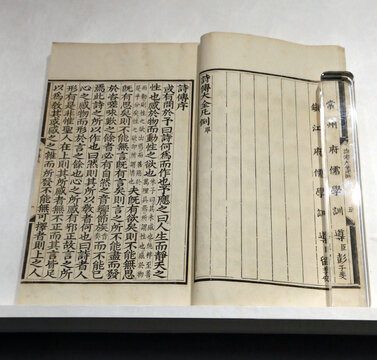 常州府儒學訓導臣彭子斐
鎮江府儒學訓導臣留季安
詩傳大全凡例畢
詩傳序
或有問於予曰詩何為而作也予應之曰人生而靜天之
性也感於物而動性之欲也
夫既有欲矣則不能無思
既有思矣則不能無言既有言矣則言之所不能盡而發
於咨嗟咏歎之餘者必有自然之音響節族而不能已
焉此詩之所以作也曰然則其所以教者何也曰詩者人
心之感物而形於言之餘也心之所感有邪正故言之所
形有是非惟聖人在上則其所感者無不正而其言皆足
以為教其或感之之雜而所發不能無可擇者則上之人